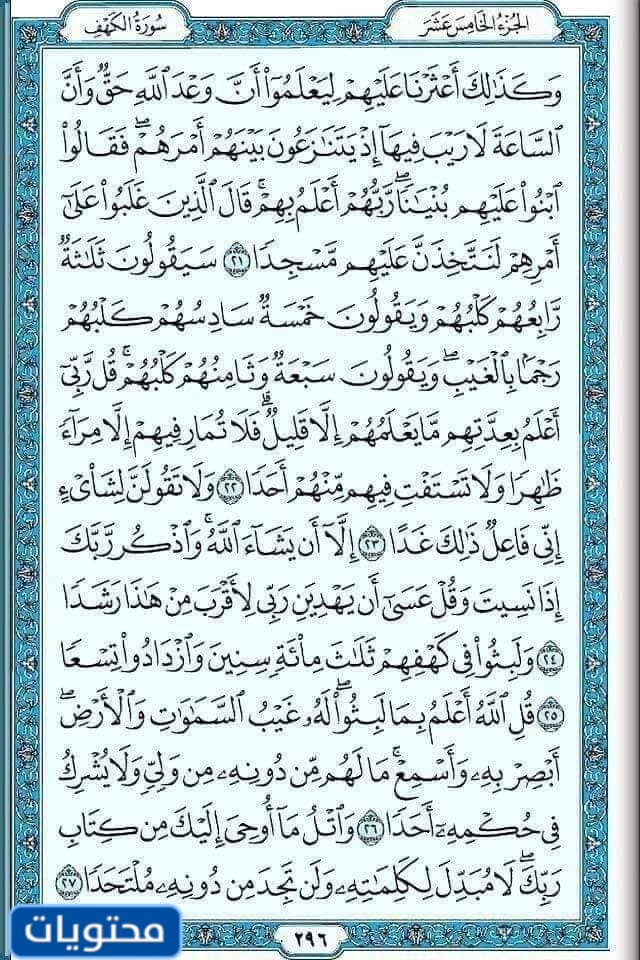 الجزء الخامس عشر
سورة الكهف
وَكَذَٰلِكَ أَعْثَرْنَا عَلَيْهِمْ لِيَعْلَمُوٓا۟ أَنَّ وَعْدَ ٱللَّهِ حَقٌّ وَأَنَّ
ٱلسَّاعَةَ لَا رَيْبَ فِيهَآ إِذْ يَتَنَٰزَعُونَ بَيْنَهُمْ أَمْرَهُمْ ۖ فَقَالُوا۟
ٱبْنُوا۟ عَلَيْهِم بُنْيَٰنًا ۖ رَّبُّهُمْ أَعْلَمُ بِهِمْ ۚ قَالَ ٱلَّذِينَ غَلَبُوا۟ عَلَىٰٓ
أَمْرِهِمْ لَنَتَّخِذَنَّ عَلَيْهِم مَّسْجِدًا ٢١ سَيَقُولُونَ ثَلَٰثَةٌ
رَّابِعُهُمْ كَلْبُهُمْ وَيَقُولُونَ خَمْسَةٌ سَادِسُهُمْ كَلْبُهُمْ
رَجْمًۢا بِٱلْغَيْبِ ۖ وَيَقُولُونَ سَبْعَةٌ وَثَامِنُهُمْ كَلْبُهُمْ ۚ قُل رَّبِّىٓ
أَعْلَمُ بِعِدَّتِهِم مَّا يَعْلَمُهُمْ إِلَّا قَلِيلٌ ۗ فَلَا تُمَارِ فِيهِمْ إِلَّا مِرَآءً
ظَٰهِرًا وَلَا تَسْتَفْتِ فِيهِم مِّنْهُمْ أَحَدًا ٢٢ وَلَا تَقُولَنَّ لِشَا۟ىْءٍ
إِنِّى فَاعِلٌ ذَٰلِكَ غَدًا ٢٣ إِلَّآ أَن يَشَآءَ ٱللَّهُ ۚ وَٱذْكُر رَّبَّكَ
إِذَا نَسِيتَ وَقُلْ عَسَىٰٓ أَن يَهْدِيَنِ رَبِّى لِأَقْرَبَ مِنْ هَٰذَا رَشَدًا
٢٤ وَلَبِثُوا۟ فِى كَهْفِهِمْ ثَلَٰثَ مِا۟ئَةٍ سِنِينَ وَٱزْدَادُوا۟ تِسْعًا
٢٥ قُلِ ٱللَّهُ أَعْلَمُ بِمَا لَبِثُوا۟ ۖ لَهُۥ غَيْبُ ٱلسَّمَٰوَٰتِ وَٱلْأَرْضِ ۖ
أَبْصِرْ بِهِۦ وَأَسْمِعْ ۚ مَا لَهُم مِّن دُونِهِۦ مِن وَلِىٍّ وَلَا يُشْرِكُ
فِى حُكْمِهِۦٓ أَحَدًا ٢٦ وَٱتْلُ مَآ أُوحِىَ إِلَيْكَ مِن كِتَابِ
رَبِّكَ ۖ لَا مُبَدِّلَ لِكَلِمَٰتِهِۦ وَلَن تَجِدَ مِن دُونِهِۦ مُلْتَحَدًا ٢٧
٢٩٦
محتويات